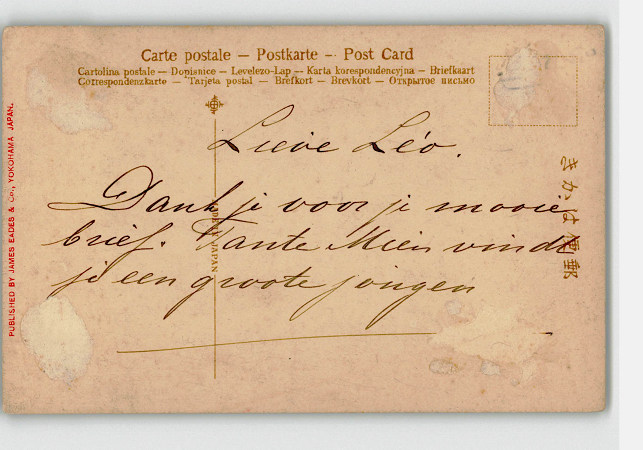 Carte postale — Postkarte — Post Card
Cartolina postale — Dopisnice — Levelezo-Lap — Karta korespondencyjna — Briefkaart
Correspondenzkarte — Tarjeta postal — Brefkort — Brevkort — Открытое письмо
Lieve Léo.
Dank je voor je mooie
brief. Tante Mien vindt
je een groote jongen
きかは便郵
PUBLISHED BY JAMES EADES & Co., YOKOHAMA JAPAN.
JAPAN